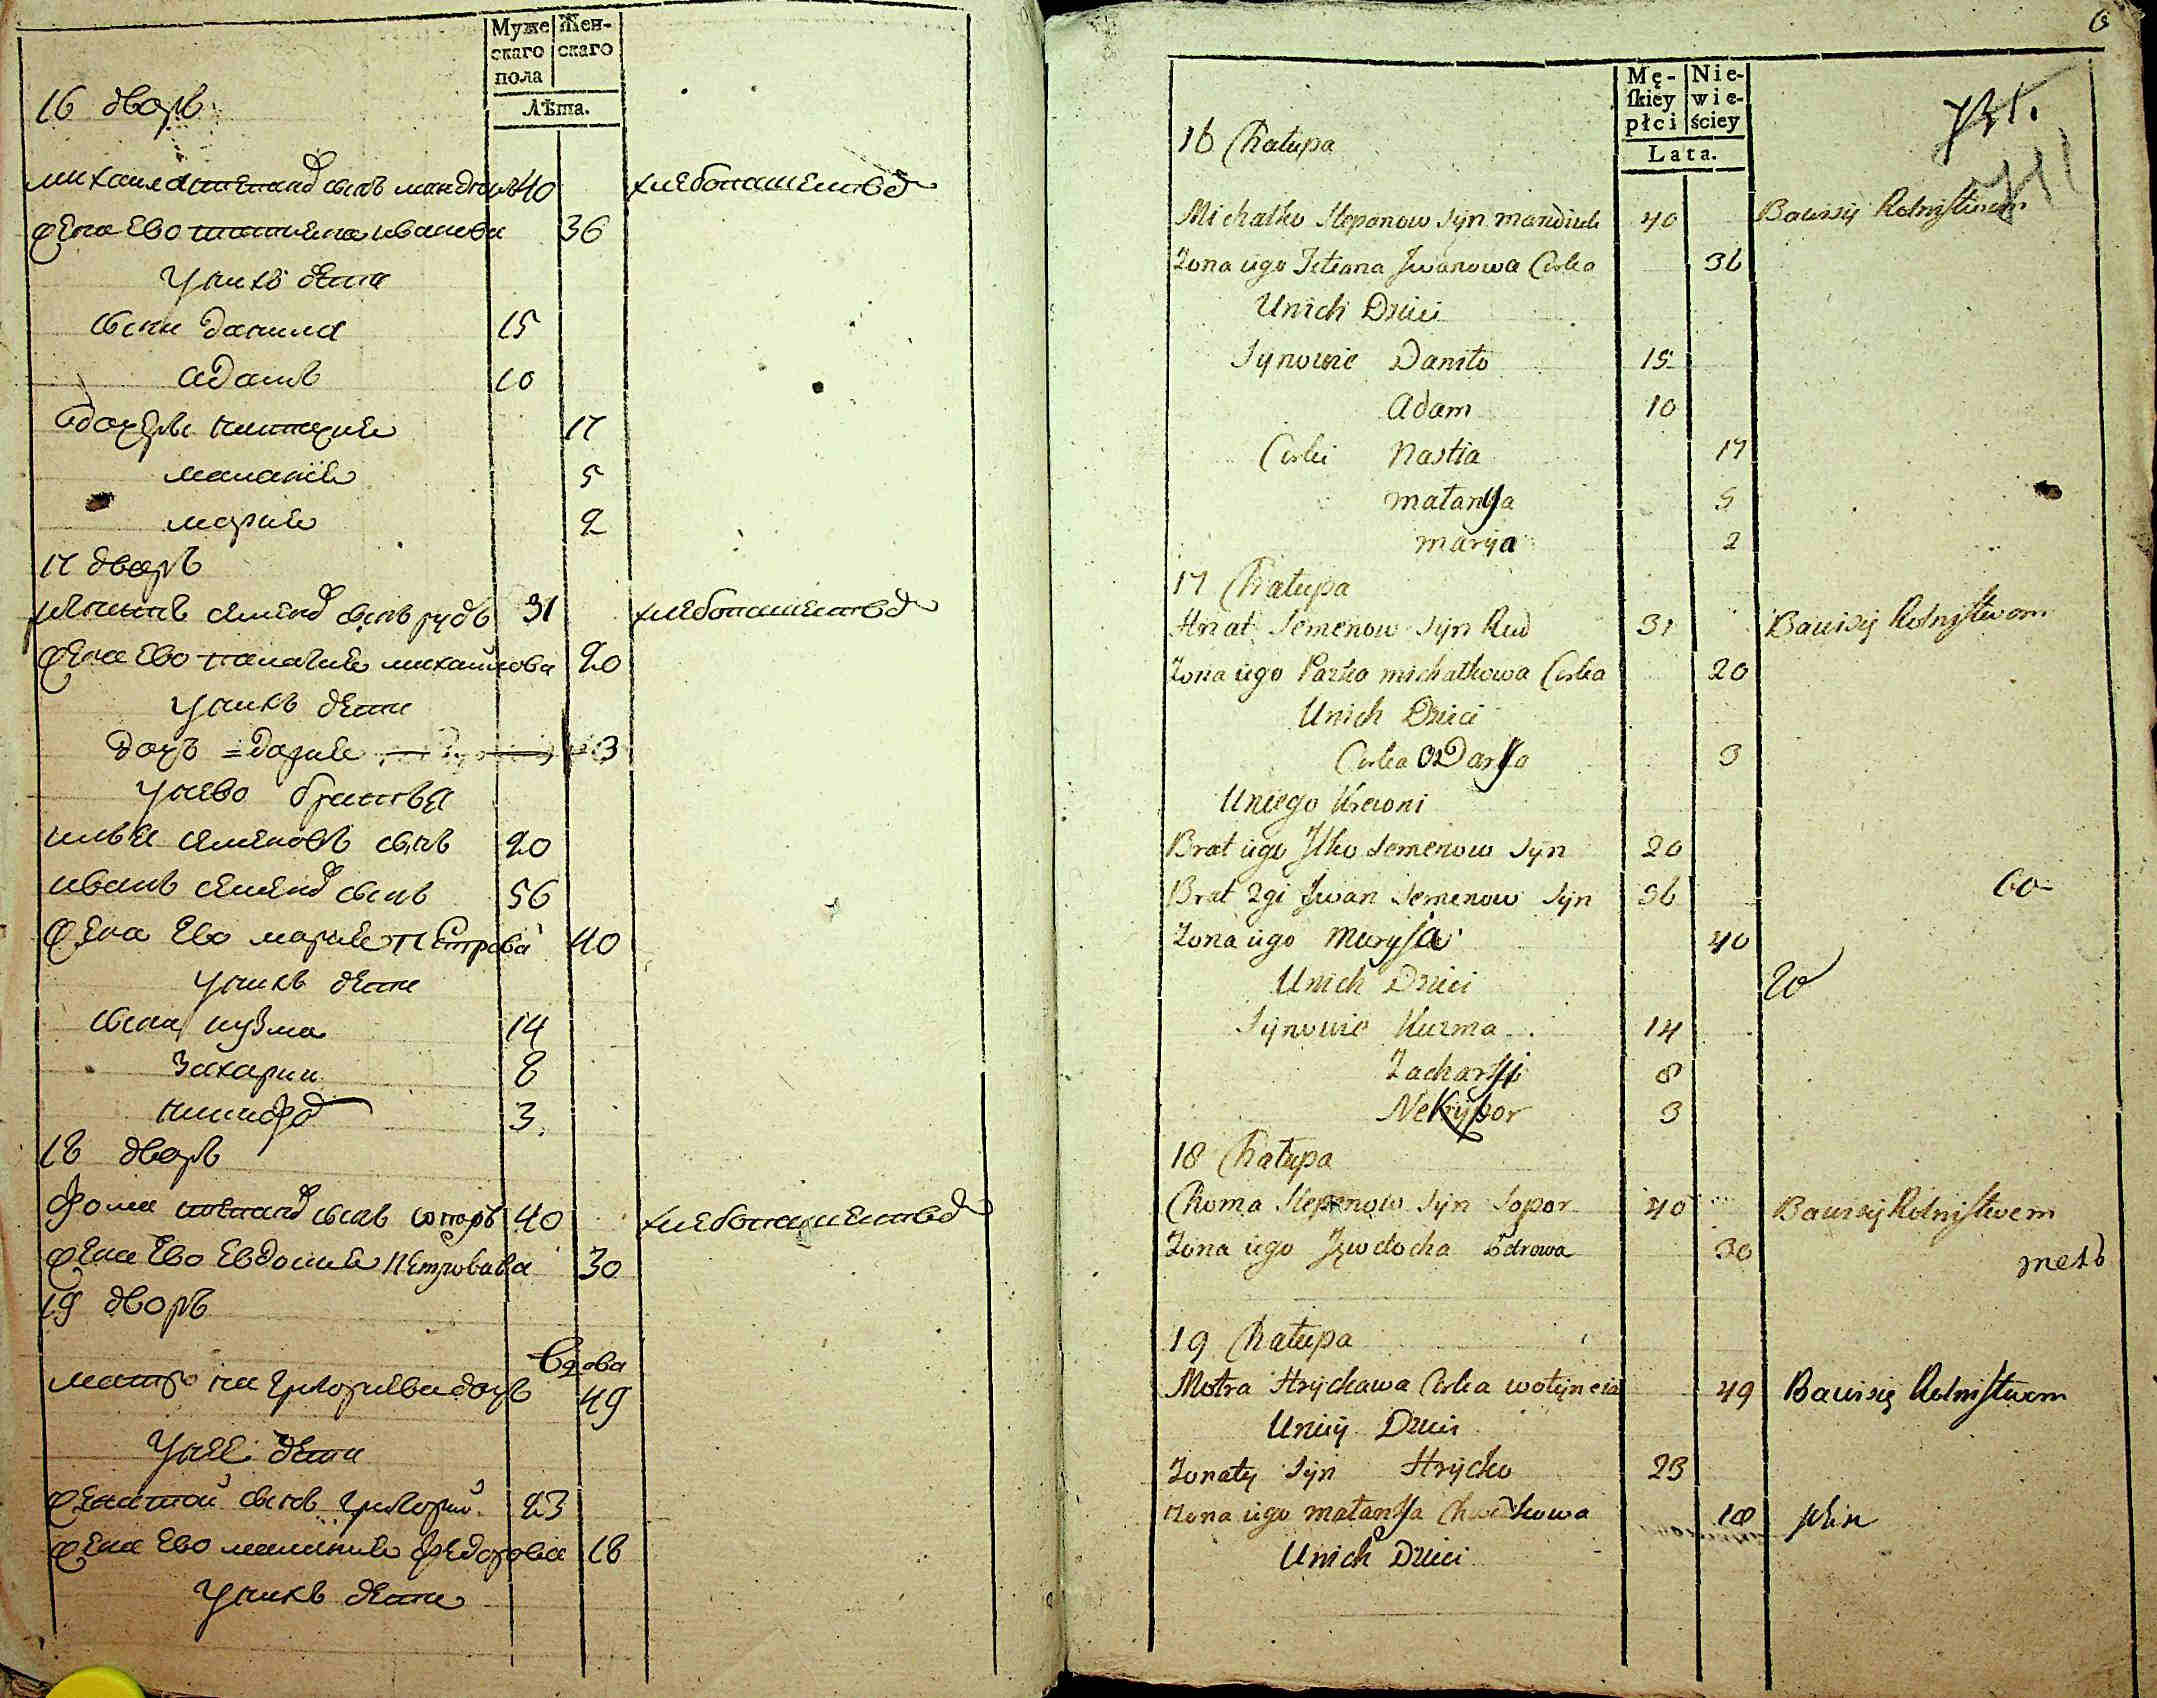 Муже Жен-
скаго скаго
пола
Лѣта.
16 дворъ
михаила степано сынъ мандзюкъ 40 хлебопашество
жена ево татиена иванова 36
У нихъ дети
сыни данила 15
адамъ 10
дочери настасия 17
малания 5
мария 2
17 дворъ
игнатъ семено сынъ рудъ 31 хлебопашество
жена ево палагия михайлова 20
У нихъ дети
дочъ дария 3
У нево братья
илья семеновъ сынъ 20
иванъ семено сынъ 56
жена ево мария петрова 40
У нихъ дети
сыни кузма 14
Захарии 8
никифо 3
18 дворъ
фома степано сынъ сопоръ 40 хлебопашество
жена ево евдокия петрова 30
19 дворъ
Вдова
матрона григориева дочъ 49
У нее дети
женатой сынъ григорий 23
жена ево малания федорова 18
У нихъ дети
6
Mę- Nie-
ſkiey wie-
płci ściey
Lata.
16 Chałupa
Michałko Stepanow Syn mandziuk 40 Bawi się Rolnistwem
Zona iego Tetiana Jwanowa Corka 36
U nich Dzieci
Synowie Daniło 15
Adam 10
Corki Nastia 17
małanya 5
marya 2
17 Chałupa
Hnat Semenow Syn Rud 31 Bawi się Rolnistwem
Zona iego Parka michałkowa Corka 20
U nich Dzieci
Corka Darya 3
U niego Krewni
Brat iego Jlko Semenow Syn 20
Brat 2gi Jwan Semenow Syn 36
Zona iego marya 40
U nich Dzieci
Synowie Kuzma 14
Zacharyi 8
Nekypor 3
18 Chałupa
Choma Stepanow Syn Sopor 40 Bawi się Rolnistwem
Zona iego Jewdocha 30
19 Chałupa
Motra Hryckowa Corka 49 Bawi się Rolnistwem
U niey Dzieci
Zonaty Syn Hrycko 23
Zona iego małanya Chwedkowa 18
U nich Dzieci